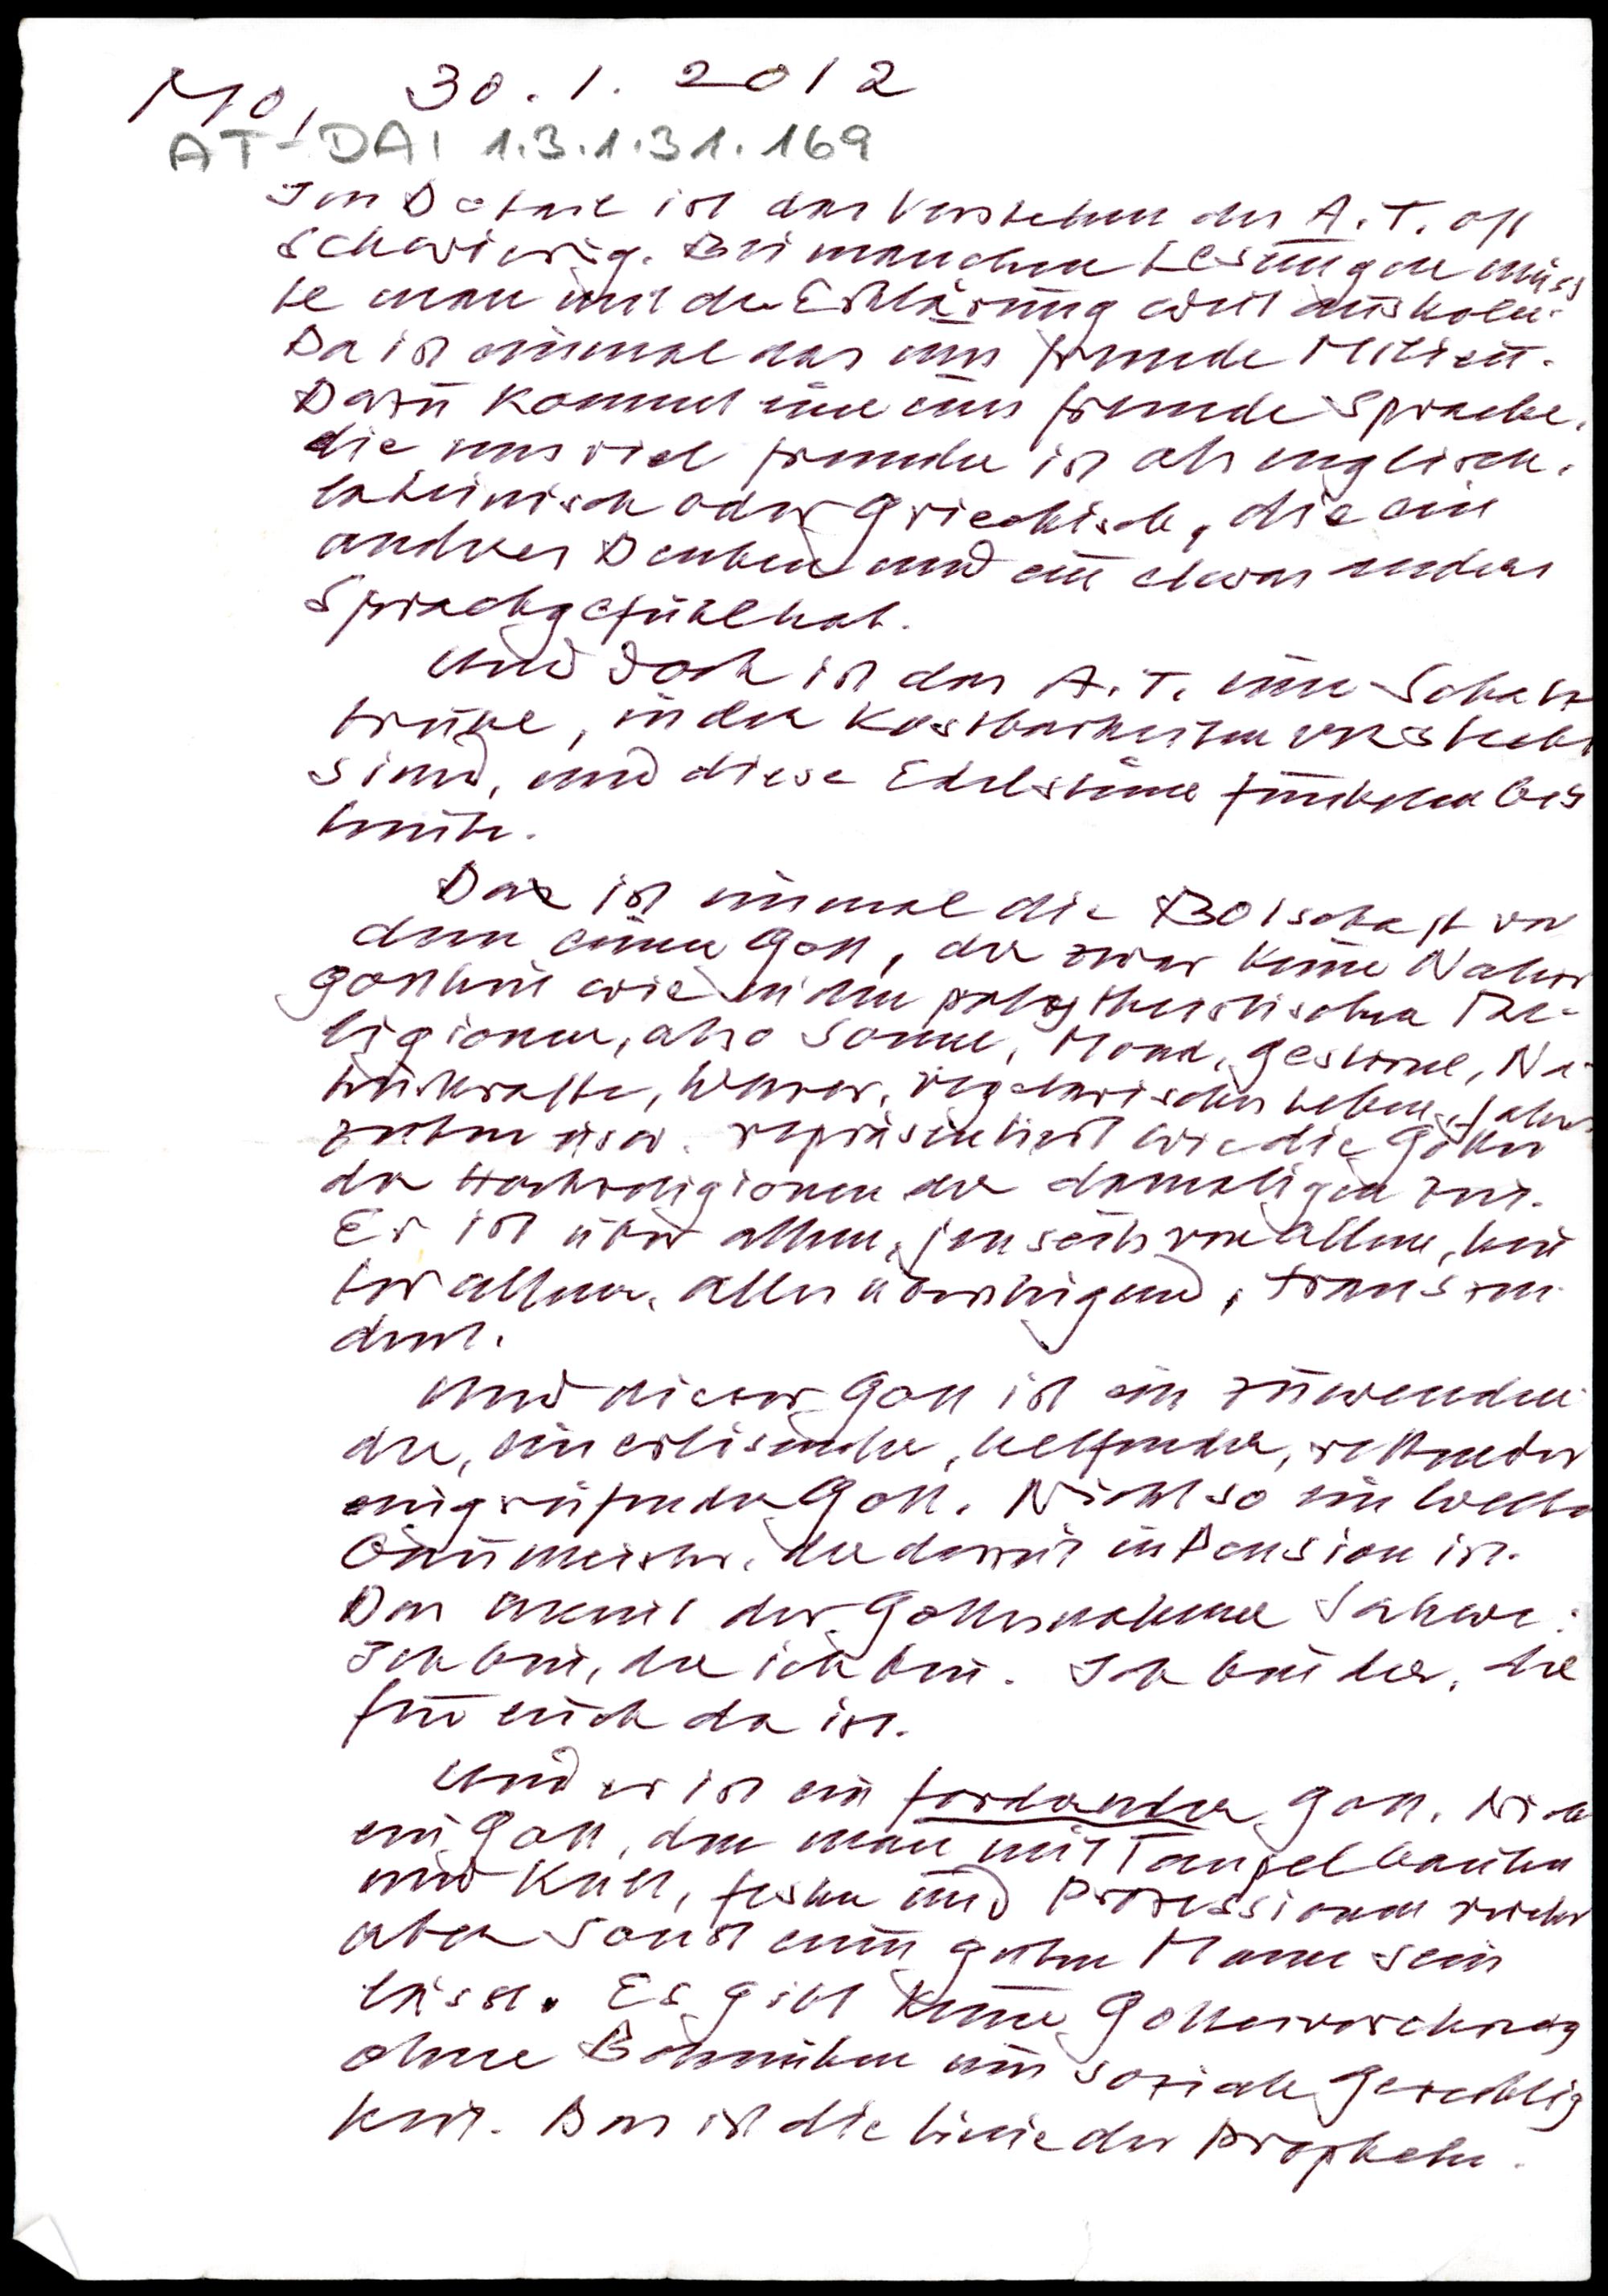 Mo, 30.1.2012
AT-DAI 1.3.1.31.169
Im Detail ist das Verstehen des A.T. oft
schwierig. Bei manchen Lesungen müss
te man mit der Erklärung weit ausholen.
Da ist einmal das uns fremde Milieu.
Dazu kommt eine uns fremde Sprache,
die uns viel fremder ist als englisch,
lateinisch oder Griechisch, die ein
andres Denken und ein etwas anderes
Sprachgefühl hat.
Und doch ist das A.T. eine Schatz
truhe, in der Kostbarkeiten versteckt
sind, und diese Edelsteine funkeln bis
heute.
Da ist einmal die Botschaft von
dem einen Gott, der zwar keine Natur
gottheit wie in den polytheistischen Re-
ligionen, also Sonne, Mond, Gestirne, Na-
turkräfte, Wasser, vegetarisches Leben, Jahres
zeiten usw. repräsentiert wie die Götter
der Hochreligionen der damaligen Zeit.
Er ist über allem, jenseits von allem, hin
ter allem, alles übersteigend, transzen-
dent.
Und dieser Gott ist ein zuwenden-
der, ein erlösender, helfender, rettender
eingreifender Gott. Nicht so ein Welten
baumeister, der derzeit in Pension ist.
Das meint der Gottesname Jahwe:
Ich bin, der ich bin. Ich bin der, der
für euch da ist.
Und er ist ein fordernder Gott. Nicht
ein Gott, den man mit Tempelbauten
und Kult, Festen und Prozessionen verehrt
aber sonst einen guten Mann sein
lässt. Es gibt keine Gottesverehrung
ohne Bemühen um soziale Gerechtig
keit. Das ist die Linie der Propheten.